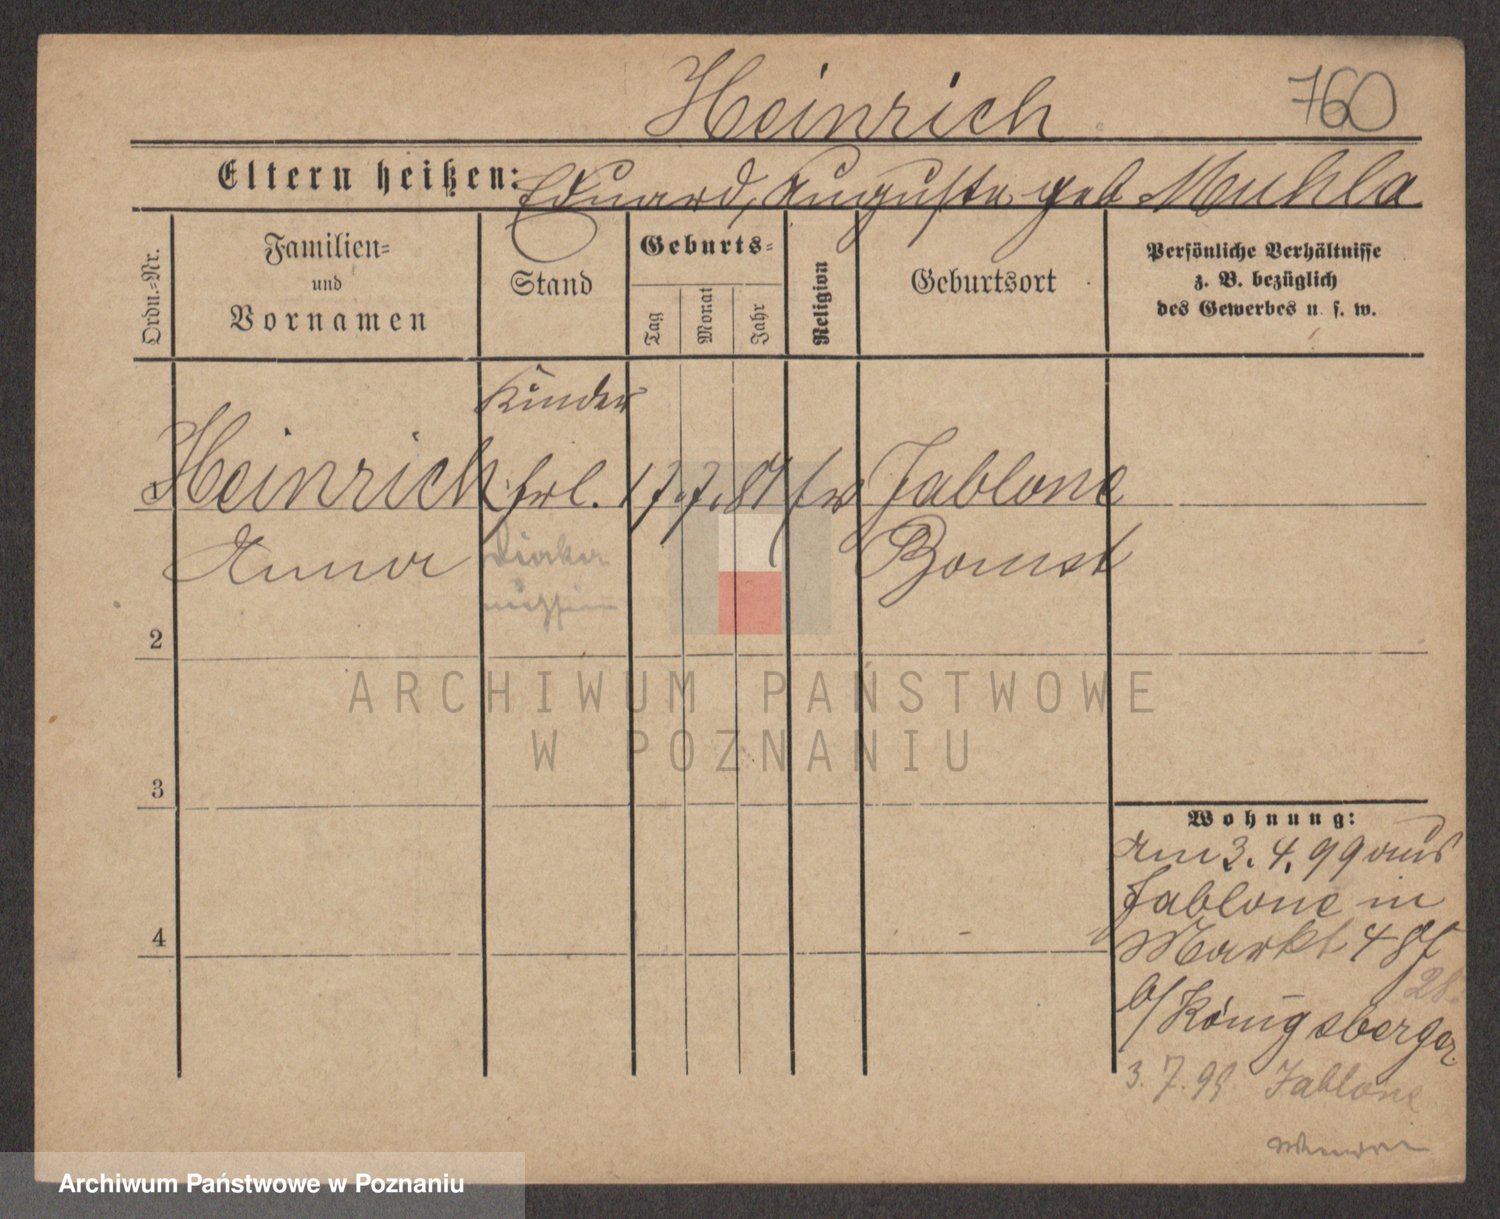 Heinrich 760
Eltern heißen: Eduard, Auguste geb Muhla
Ordn.-Nr.
Familien- und Vornamen
Stand
Geburts-
Tag
Monat
Jahr
Religion
Geburtsort
Persönliche Verhältnisse
z. B. bezüglich
des Gewerbes u. s. w.
Kinder
1 Heinrich frl. 17.7.81 ev Jablone
Anna Bomst
2
3
4
Wohnung:
Am 3.4.99 aus
Jablone in
Markt 48
28.
b/Königsberger
3.7.99 Jablone
ARCHIWUM PAŃSTWOWE
W POZNANIU
Archiwum Państwowe w Poznaniu